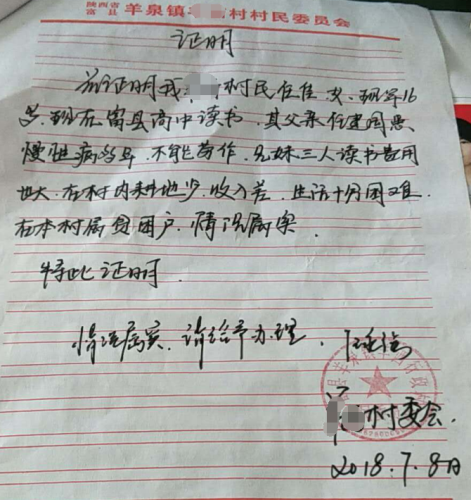 陕西省
富县 羊泉镇 村村民委员会
证明
兹证明我 村民任佳 女、现年16
岁、现在富县高中读书、其父亲任建国患
慢性病多年、不能劳作、兄妹三人读书费用
也大、在村内耕地少、收入差、生活十分困难
在本村属贫困户、情况属实
特此证明
情况属实、请给予办理、
村委会
2018.7.8日